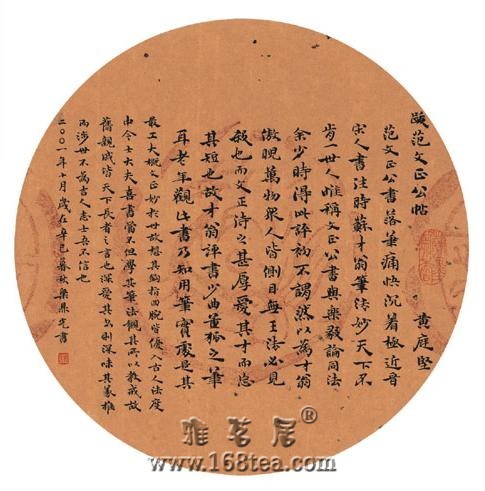 跋范文正公帖 黄庭坚
范文正公書落筆痛快沉着極近晉
宋人書注時蘇才翁筆法妙天下不
肯一世人惟稱文正公書與樂毅論同法
余少時得此評初不謂然以為才翁
傲睨萬物衆人皆側目無王法必見
殺也而文正待之甚厚愛其才而忘
其短也故才翁評書少曲董狐之筆
耳老年觀此書乃知用筆實處是其
最工大概文正妙於世故想其指回腕皆優入古人法度
中今士大夫喜書當不但學其筆法觀其所以教戒故
舊親戚皆天下長者之言也深愛其書則深味其義推
而涉世不為吉人志士吾不信也
二〇〇一年十月歲在辛巳暮秋梁鼎光書
雅茗居®
www.168tea.com